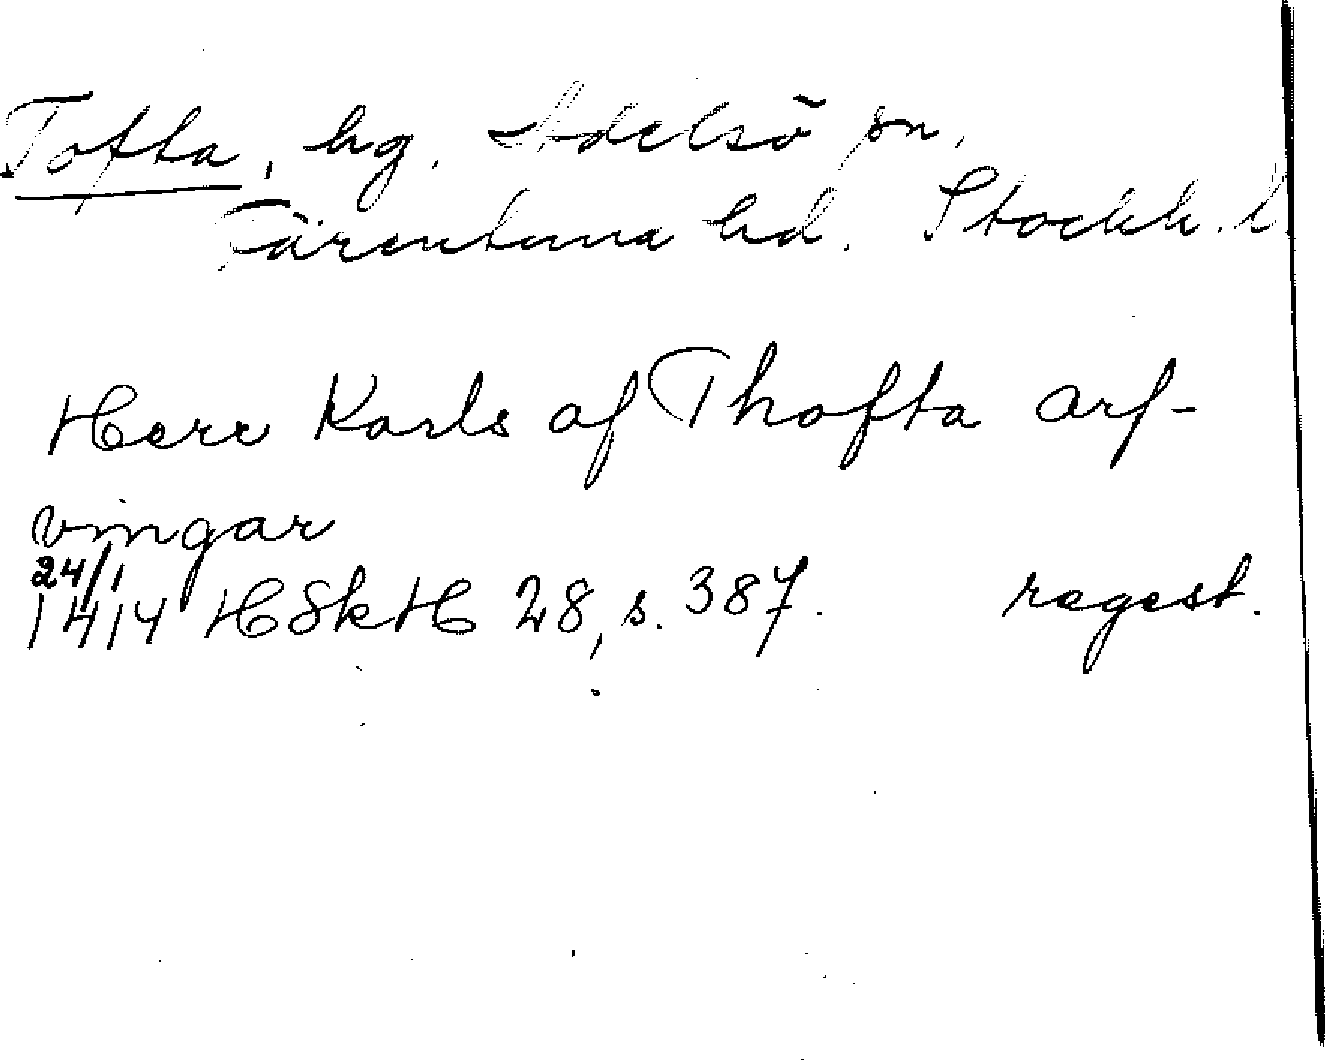 Tofta, hg, Adelsö sn,
Färentuna hd. Stockh. l
Herr Karls af Thofta arf-
vingar
24/1
1414 HSkH 28, s. 387. regest.